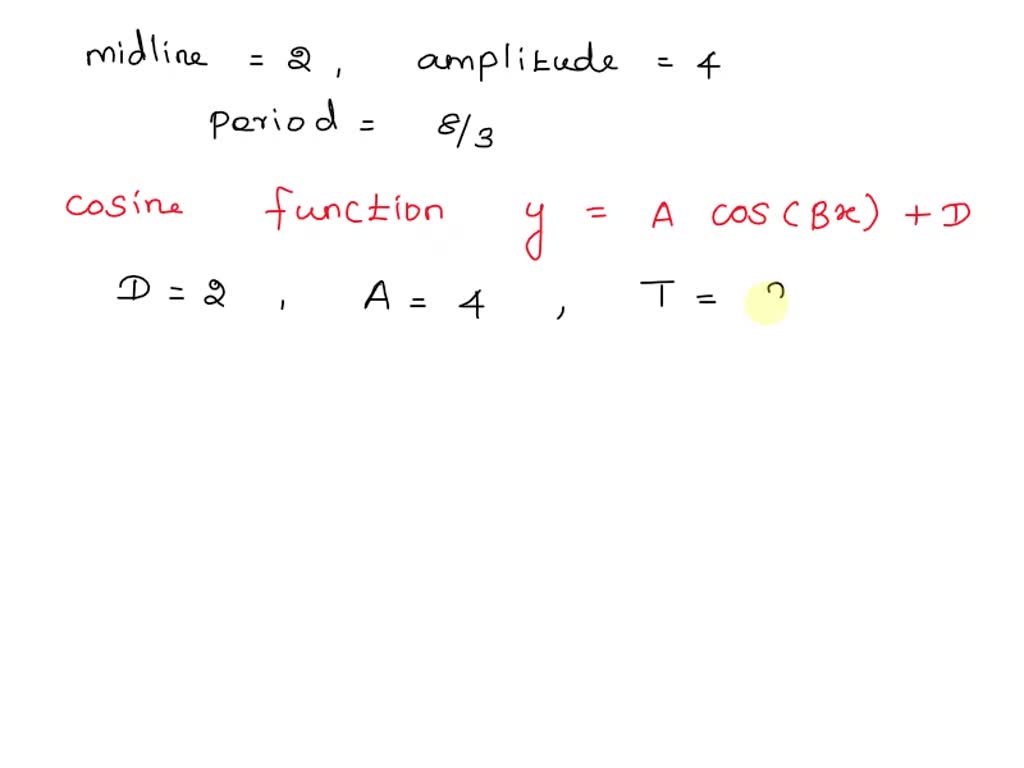 midline = 2, amplitude = 4
period = 8/3
cosine function y = A cos(Bx) + D
D = 2, A = 4, T =